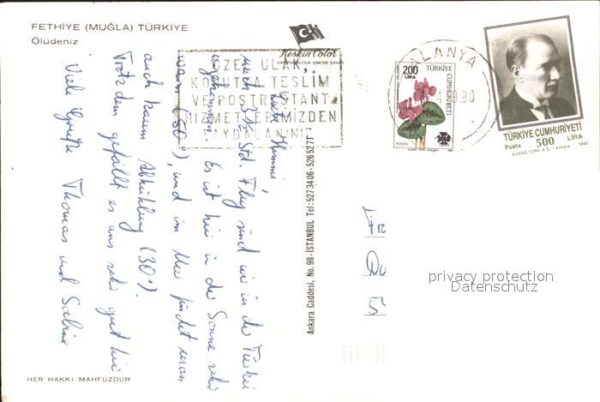 FETHİYE (MUĞLA) TÜRKİYE
Ölüdeniz
Keskin Color
ÖZEL ULAK,
KONUTTA TESLİM
VE POSTRESTANT
HİZMETLERİMİZDEN
ALANYA
90
200
LİRA
TÜRKİYE
CUMHURİYETİ
POSTA
TÜRKİYE CUMHURİYETİ
Posta 500 LİRA
nach Std. Flug sind wir in der Türkei
Es ist hier in der Sonne sehr
warm (50°), und im Meer findet man
auch kaum Abkühlung (30°).
Trotzdem gefällt es uns sehr gut hier
Viele Grüße Thomas und Sabine
Ankara Caddesi, No. 98-İSTANBUL Tel: 5273406-5265271
privacy protection
Datenschutz
HER HAKKI MAHFUZDUR